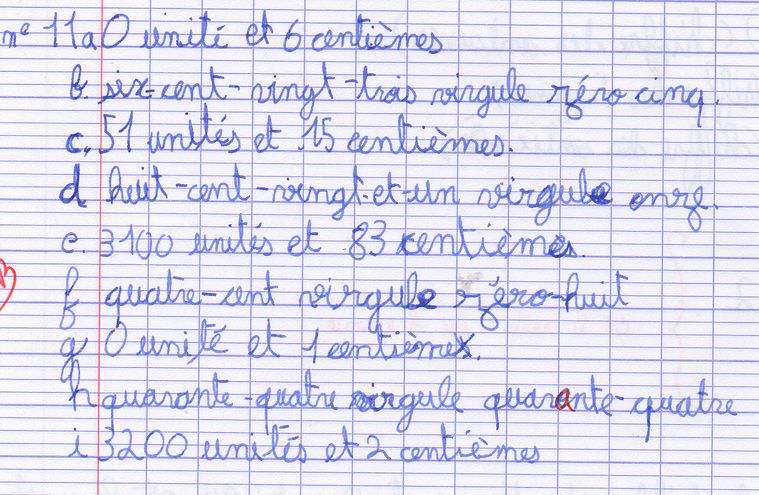 n° 11 a 0 unité et 6 centièmes
b. six-cent-vingt-trois virgule zéro cinq.
c. 51 unités et 15 centièmes.
d huit-cent-vingt-et-un virgule onze.
e. 3100 unités et 83 centièmes.
f quatre-cent virgule zéro-huit
g 0 unité et 1 centième.
h quarante-quatre virgule quarante-quatre
i 3200 unités et 2 centièmes